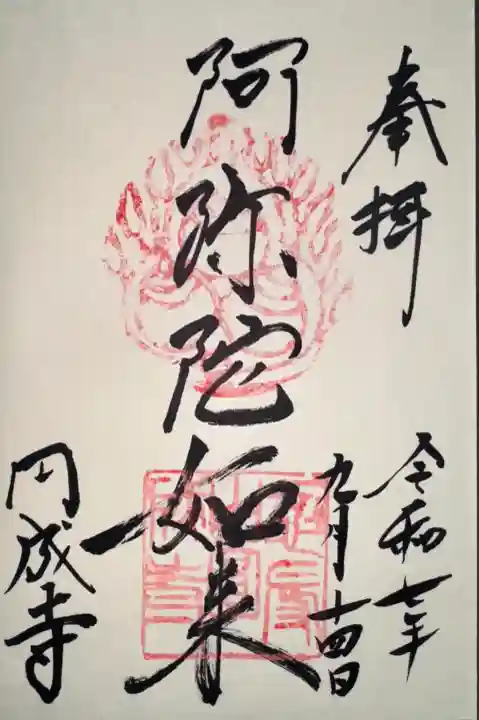 奉拝
令和七年
九月十四日
阿弥陀如来
円成寺